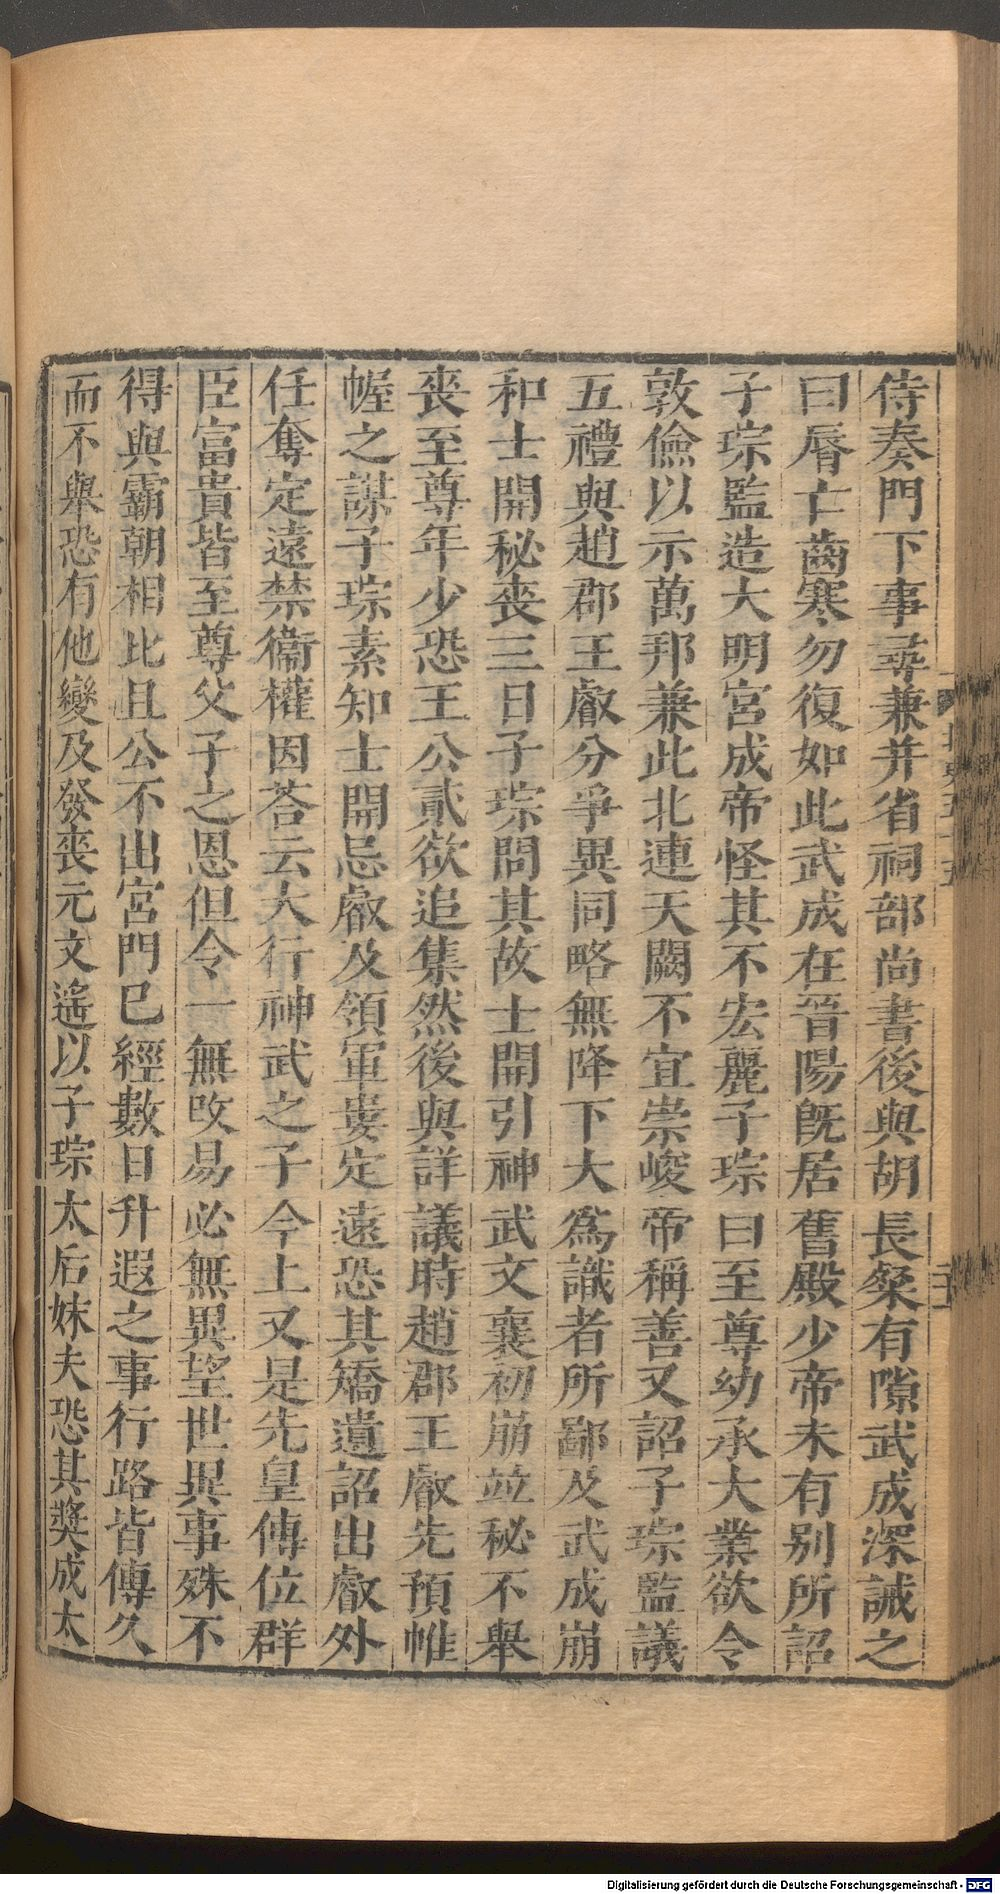 侍奏門下事尋兼并省祠部尚書後與胡長粲有隙武成深誡之
曰脣亡齒寒勿復如此武成在晉陽既居舊殿少帝未有别所詔
子琮監造大明宮成帝怪其不宏麗子琮曰至尊幼承大業欲令
敦儉以示萬邦兼此北連天闕不宜崇峻帝稱善又詔子琮監議
五禮與趙郡王叡分爭異同略無降下大爲識者所鄙及武成崩
和士開秘喪三日子琮問其故士開引神武文襄初崩並秘不舉
喪至尊年少恐王公貳欲追集然後與詳議時趙郡王叡先預帷
幄之謀子琮素知士開忌叡及領軍婁定遠恐其矯遺詔出叡外
任奪定遠禁衞權因荅云大行神武之子今上又是先皇傳位群
臣富貴皆至尊父子之恩但令一無改易必無異望世異事殊不
得與霸朝相比且公不出宮門已經數日升遐之事行路皆傳久
而不舉恐有他變及發喪元文遙以子琮太后妹夫恐其奬成太
北史五十五
Digitalisierung gefördert durch die Deutsche Forschungsgemeinschaft - DFG